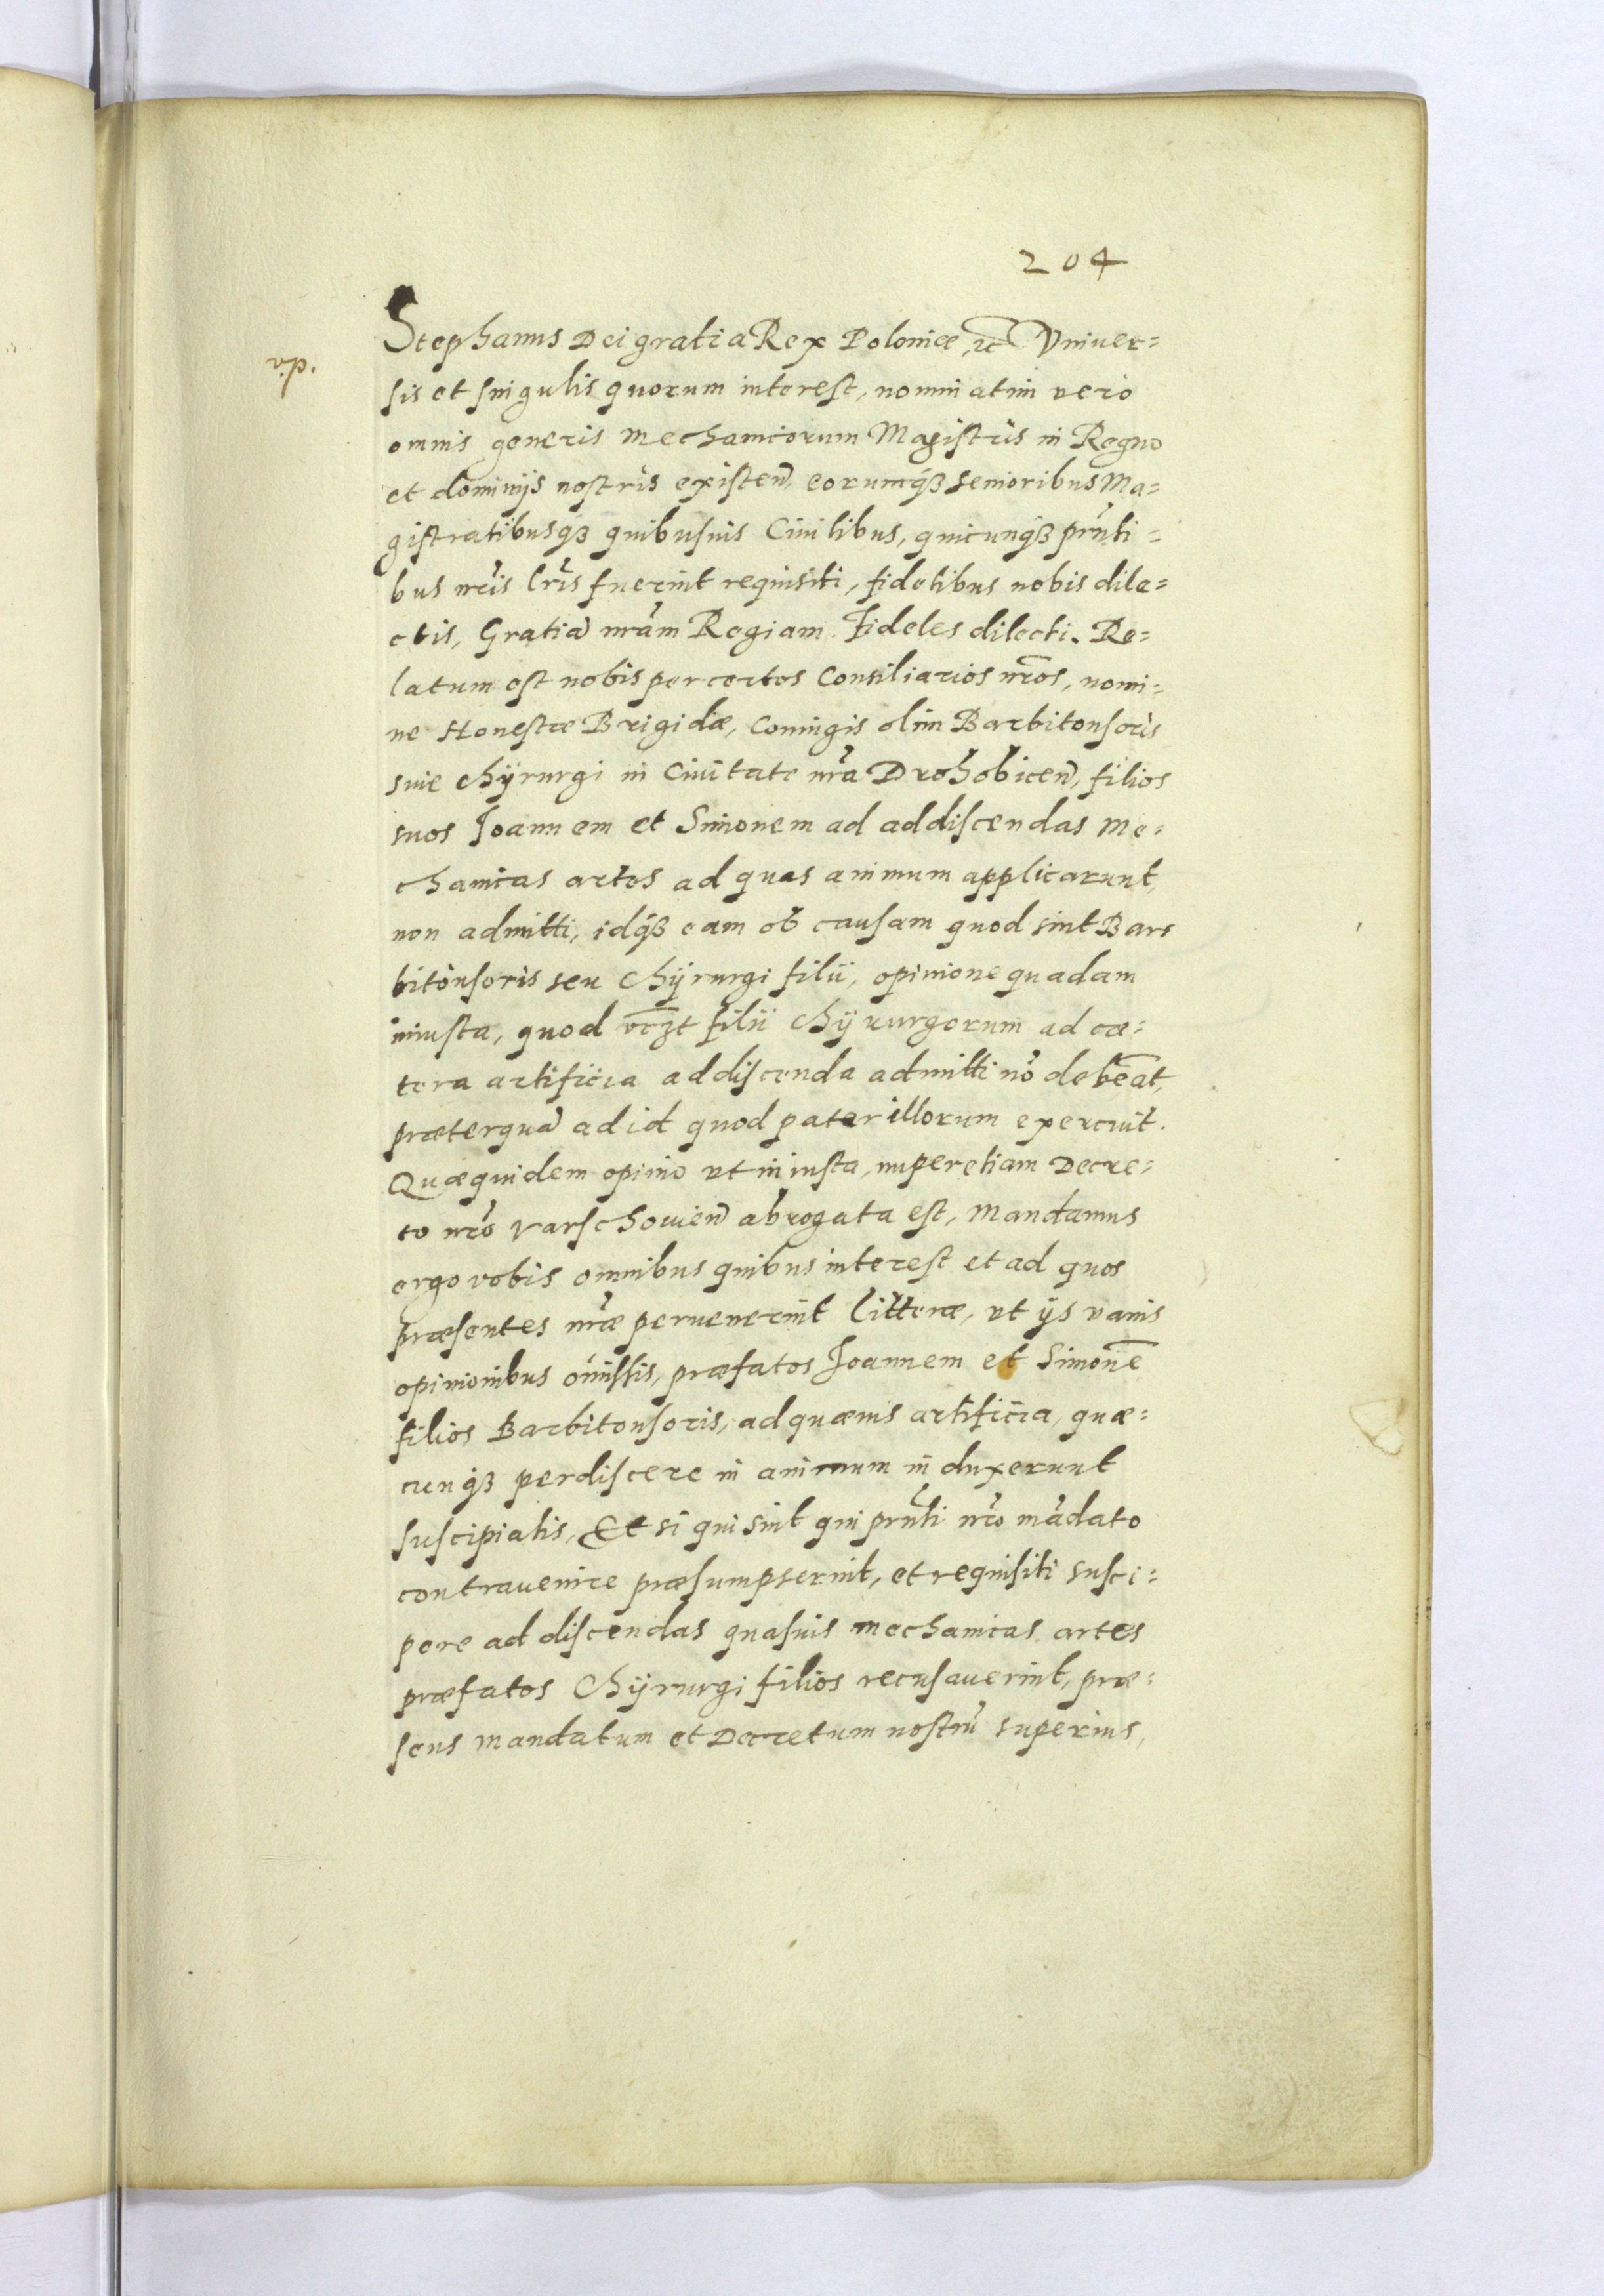 204
Stephanus Dei gratia Rex Poloniæ, etc Vniuer=
sis et singulis quorum interest, nominatim vero
omnis generis mechanicorum Magistris in Regno
et dominijs nostris existen̄, eorumq́ꝫ senioribus Ma=
gistratibusqꝫ quibusuis Ciuilibus, quicunq́ꝫ pr̃nti=
bus nr̃is lr̃is fuerint requisiti, fidelibus nobis dile=
ctis, Gratiā nr̃am Regiam. Fideles dilecti. Re=
latum est nobis per certos Consiliarios nr̃os, nomi=
ne Honestæ Brigidæ, Coniugis olim Barbitonsoris
siue chÿrurgi in Ciuitate nr̃a Drohobicen̄, filios
suos Joannem et Simonem ad addiscendas Me=
chanicas artes ad quas animum applicarunt,
non admitti, idq́ꝫ eam ob causam quod sint Bar=
bitonsoris seu chÿrurgi filii, opinione quadam
iniusta, quod vc̃zt filii chÿrurgorum ad cæ=
tera artificia addiscenda admitti nō debeāt,
præterquā ad id quod pater illorum exercuit.
Quæquidem opinio vt iniusta, nuper etiam Decre=
to nr̃o Varschouien̄ abrogata est, Mandamus
ergo vobis omnibus quibus interest et ad quos
præsentes nr̃æ peruenerint litteræ, vt ijs vanis
opinionibus om̄issis, præfatos Joannem et Simonē
filios Barbitonsoris, ad quæuis artificia, quæ=
cunqꝫ perdiscere in animum induxerunt
suscipiatis, Et si qui sint qui pr̃nti nr̃o mādato
contrauenire præsumpserint, et requisiti susci=
pere ad discendas quasuis mechanicas artes
præfatos Chÿrurgi filios recusauerint, præ=
sens mandatum et Decretum nostrū superius,